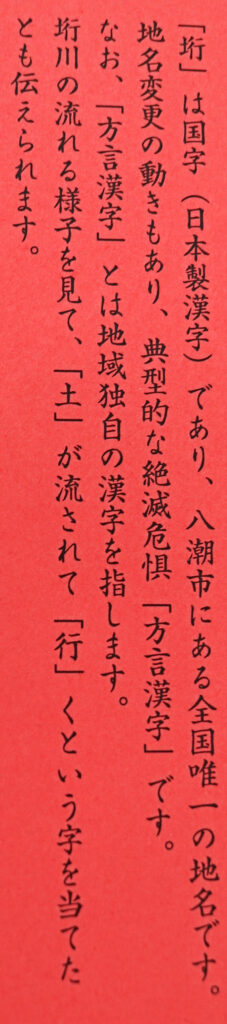 「垳」は国字（日本製漢字）であり、八潮市にある全国唯一の地名です。
地名変更の動きもあり、典型的な絶滅危惧「方言漢字」です。
なお、「方言漢字」とは地域独自の漢字を指します。
垳川の流れる様子を見て、「土」が流されて「行」くという字を当てた
とも伝えられます。